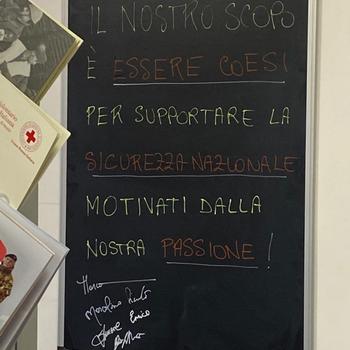 IL NOSTRO SCOPO
È ESSERE COESI
PER SUPPORTARE LA
SICUREZZA NAZIONALE
MOTIVATI DALLA
NOSTRA PASSIONE!
Enrico